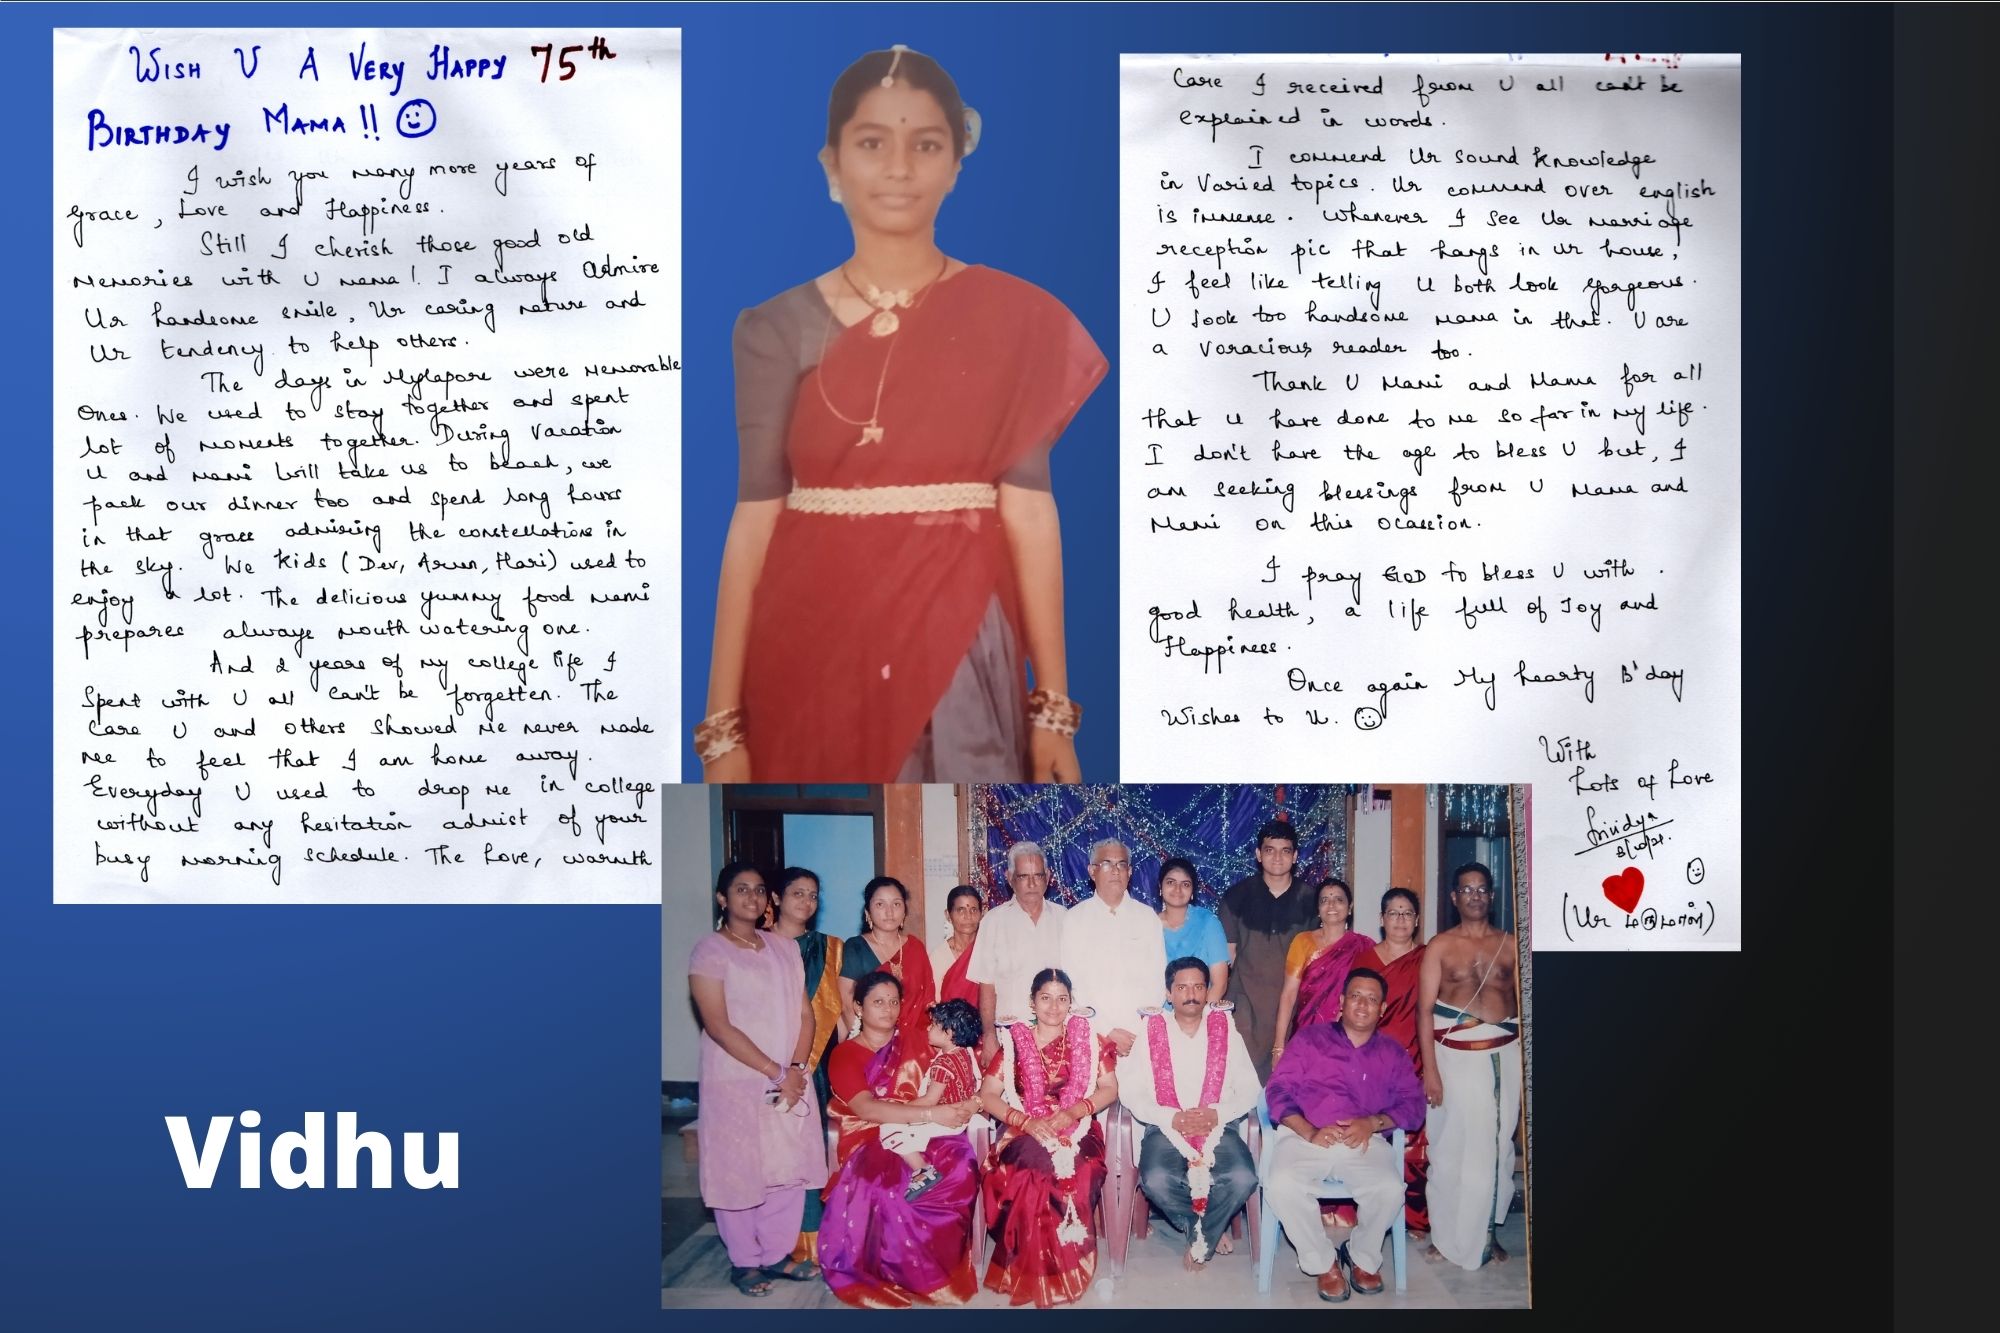 Wish U A Very Happy 75th
Birthday Mama!!
I wish you many more years of
grace, Love and Happiness.
Still I cherish those good old
memories with U mama! I always Admire
Ur handsome smile, Ur caring nature and
Ur tendency to help others.
The days in Mylapore were memorable
Ones. We used to stay together and spent
lot of moments together. During Vacation
U and mami will take us to beach, we
pack our dinner too and spend long hours
in that grass admiring the constellations in
the sky. We kids (Dev, Arun, Hari) used to
enjoy a lot. The delicious yummy food mami
prepares always mouth watering one.
And 2 years of my college life I
Spent with U all can't be forgetten. The
Care U and others showed me never made
me to feel that I am home away.
Everyday U used to drop me in college
without any hesitation admist of your
busy morning schedule. The Love, warmth
Care I received from U all can't be
explained in words.
I commend Ur sound knowledge
in Varied topics. Ur command over english
is immense. Whenever I see Ur marriage
reception pic that hangs in ur house,
I feel like telling U both look gorgeous.
U look too handsome mama in that. U are
a voracious reader too.
Thank U Mami and Mama for all
that u have done to me so far in my life.
I don't have the age to bless U but, I
am seeking blessings from U Mama and
Mami on this ocassion.
I pray GOD to bless U with
good health, a life full of Joy and
Happiness.
Once again My hearty B'day
Wishes to U.
With
Lots of Love
Srividya
(Ur மருமாள்)
Vidhu